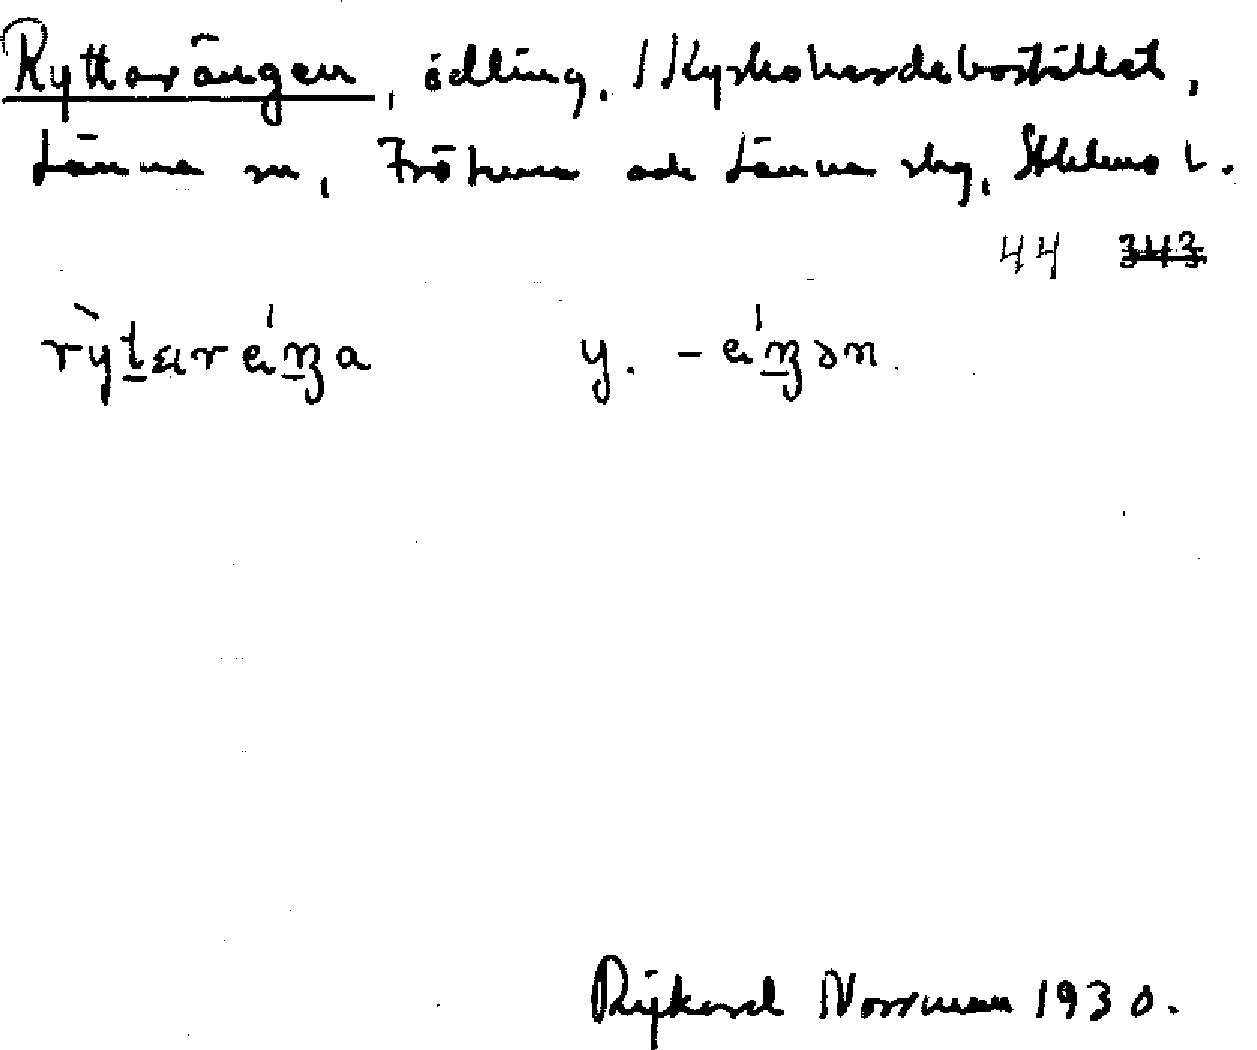 Ryttarängen, odling. 1 Kyrkoherdebostället,
Länna sn, Frötuna och Länna skg, Sthlms l.
44 343
rỳtɛareŋa y. -eŋən
Rijkard Norrman 1930.